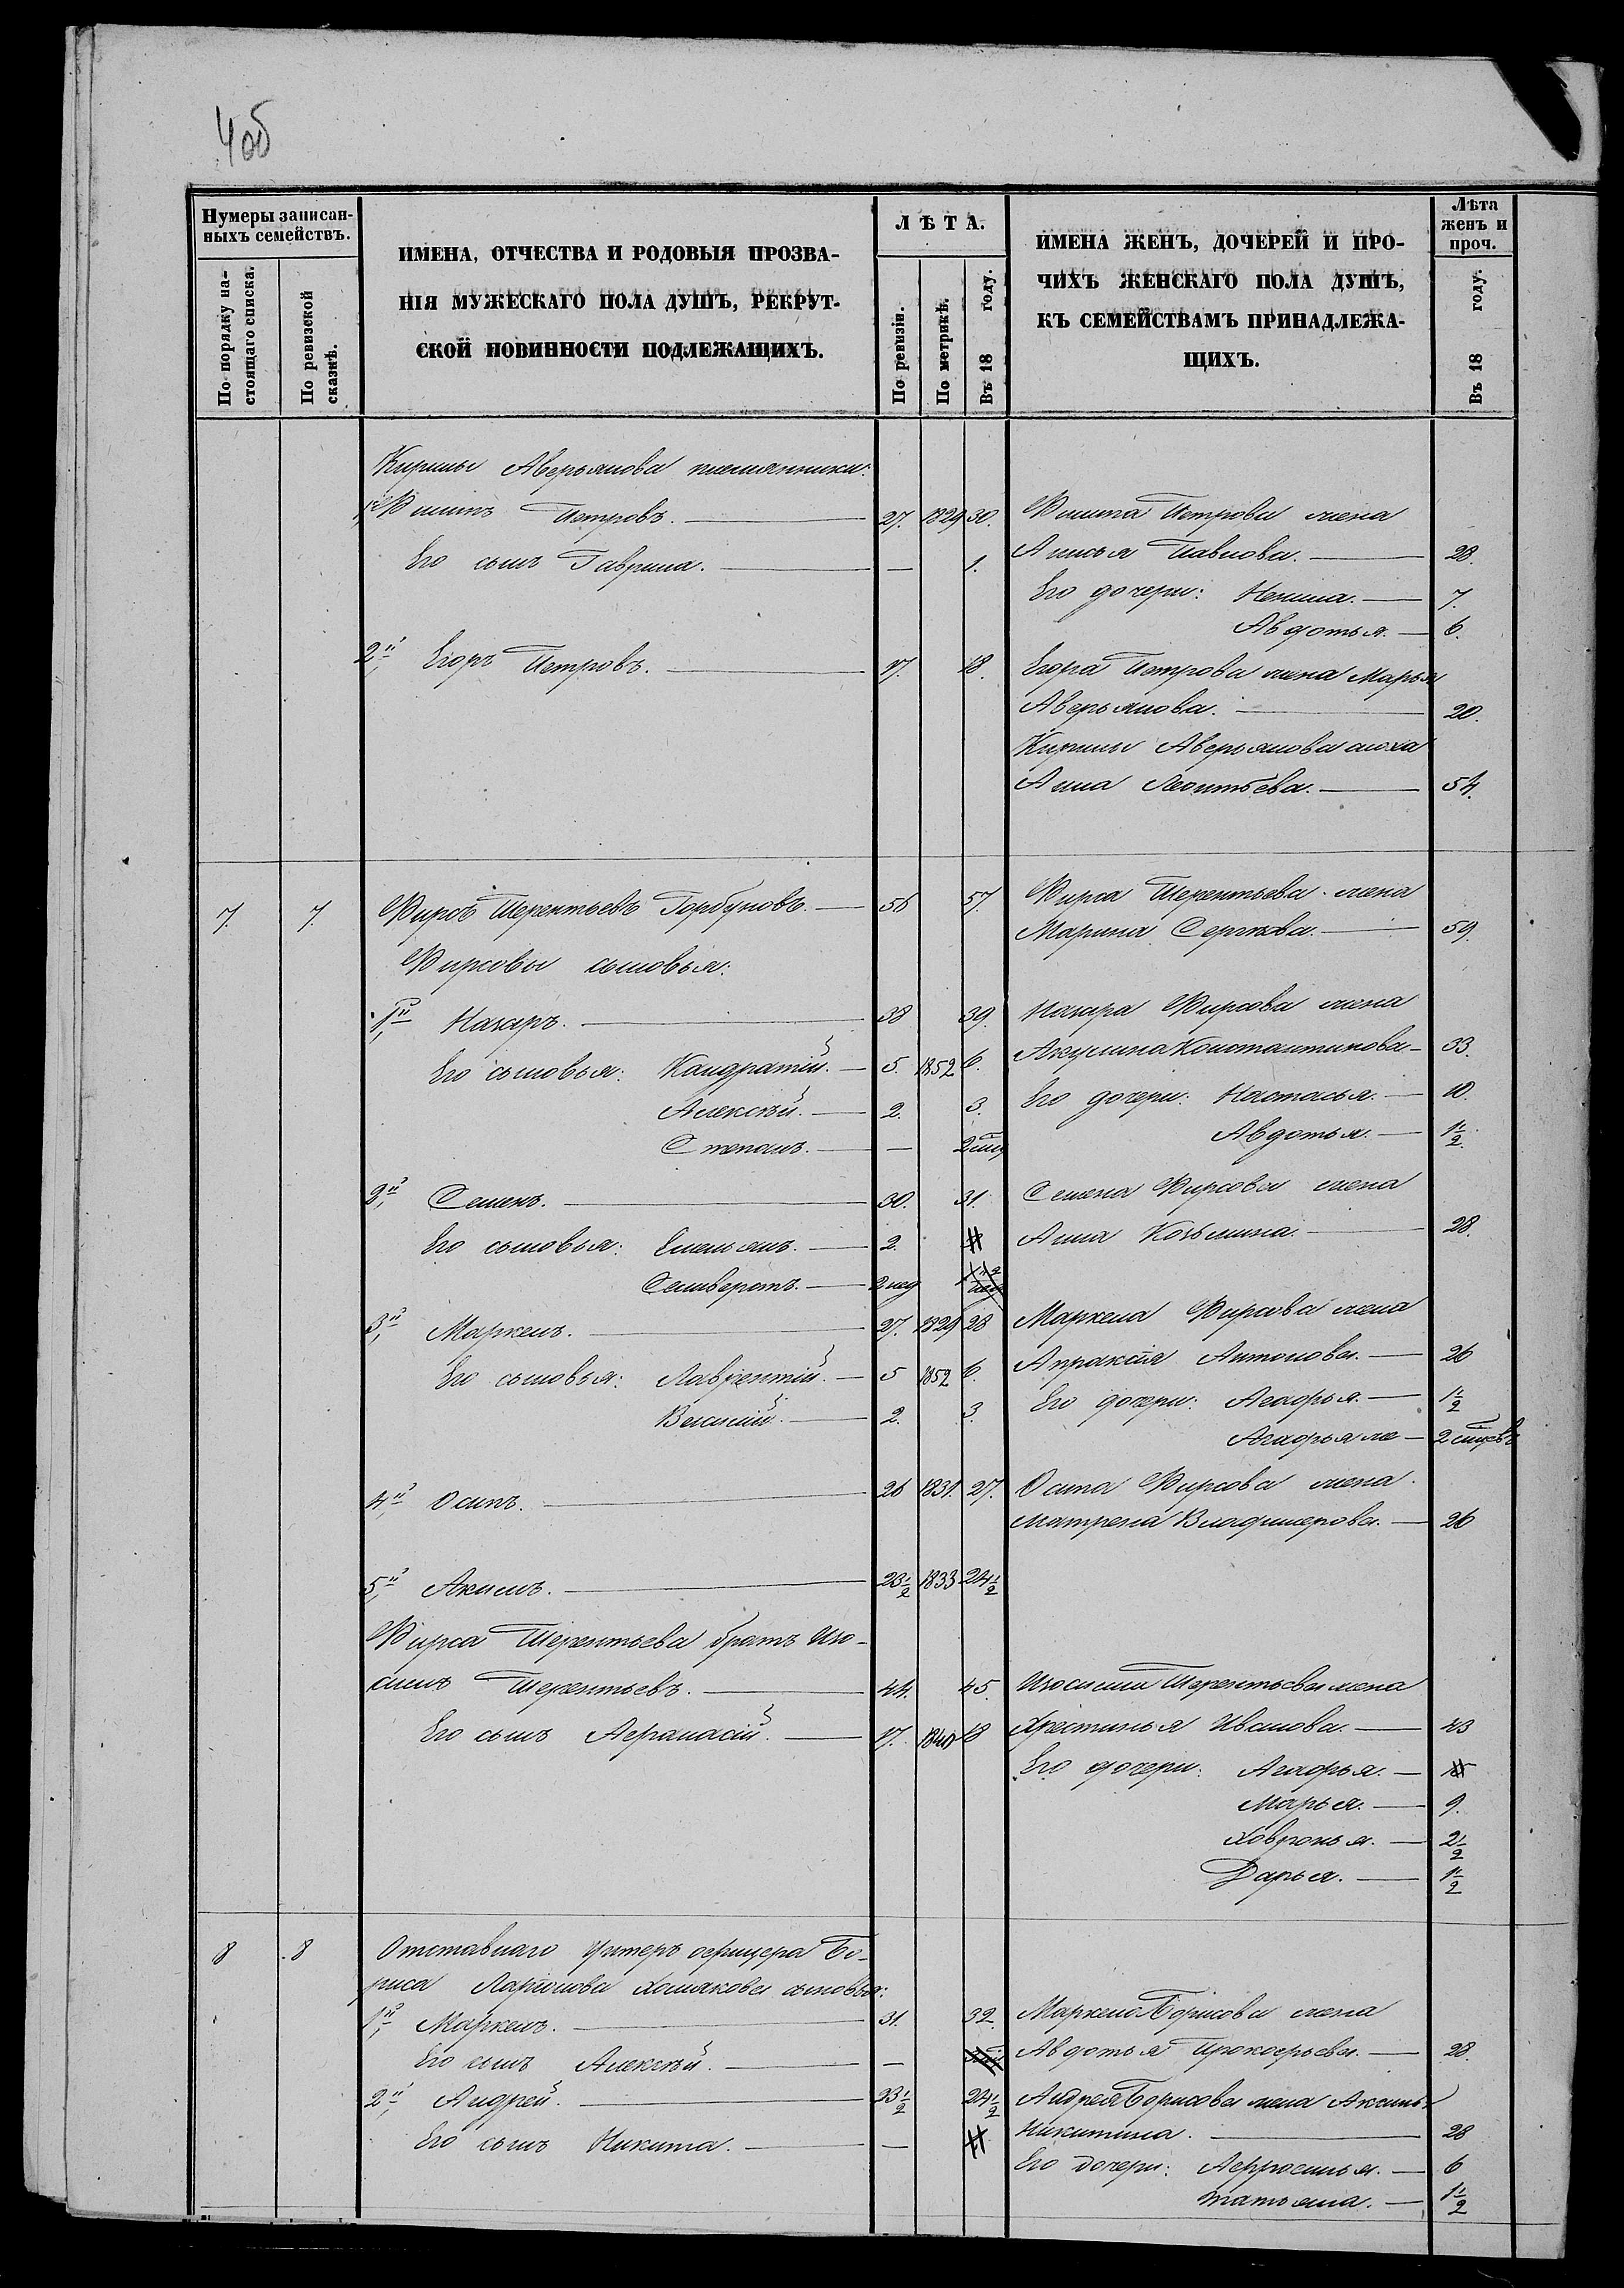 4об
Нумеры записан-
ныхъ семействъ.
По порядку на-
стоящаго списка.
По ревизской
сказкѣ.
ИМЕНА, ОТЧЕСТВА И РОДОВЫЯ ПРОЗВА-
НІЯ МУЖЕСКАГО ПОЛА ДУШЪ, РЕКРУТ-
СКОЙ ПОВИННОСТИ ПОДЛЕЖАЩИХЪ.
ЛѢТА.
По ревизіи.
По метрикѣ.
Въ 18 году.
ИМЕНА ЖЕНЪ, ДОЧЕРЕЙ И ПРО-
ЧИХЪ ЖЕНСКАГО ПОЛА ДУШЪ,
КЪ СЕМЕЙСТВАМЪ ПРИНАДЛЕЖА-
ЩИХЪ.
Лѣта
женъ и
проч.
Въ 18 году.
Кирилы Аверьянова племянники:
1й Филипъ Петровъ. 27. 1829 30. Филипа Петрова жена
Его сынъ Гаврила. — 1. Анисья Павлова. 28.
Его дочери: Ненила. 7.
Авдотья. 6.
2й Егоръ Петровъ. 17. 18. Егора Петрова жена Марья
Аверьянова. 20.
Кирилы Аверьянова сноха
Анна Леонтьева. 54.
7. 7. Фирсъ Терентьевъ Горбуновъ. 56 57. Фирса Терентьева жена
Марина Сергѣева. 59.
Фирсовы сыновья:
1й Назаръ. 38 39. Назара Фирсова жена
Его сыновья: Кандратій. 5. 1852 6. Акулина Константинова 33.
Алексѣй. 2. 3. Его дочери: Настасья. 10.
Степанъ. — Авдотья. 1 1/2
2й Семенъ. 30. 31. Семена Фирсова жена
Его сыновья: Емельянъ. 2. Анна Козьмина. 28.
Селиверстъ. 2 нед
3й Маркелъ. 27. 1829 28 Маркела Фирсова жена
Его сыновья: Лаврентій. 5 1852 6. Апраксія Антонова. 26
2. 3. Его дочери: Агафья. 1 1/2
Агафья же 2
4й Осипъ. 26 1831. 27. Осипа Фирсова жена
Матрена Владимерова. 26
5й Акимъ. 23 1/2 1833 24 1/2
Фирса Терентьева братъ Изо-
симъ Терентьевъ. 44. 45. Изосима Терентьева жена
Его сынъ Афанасій. 17. 1840 18 Христинья Иванова. 43
Его дочери: Агафья.
Марья. 9.
Ховронья. 2 1/2
Дарья. 1 1/2
8 8 Отставнаго Унтеръ офицера Бо-
риса Ларіонова Хомякова сыновья:
1й Маркелъ. 31. 32. Маркела Борисова жена
Его сынъ Алексѣй. — Авдотья Прокофьева. 28.
2й Андрей. 23 1/2 24 1/2 Андрея Борисова жена Аксинья
Его сынъ Никита. — Никитина. 28
Его дочери: Афросинья. 6
Татьяна. 1 1/2